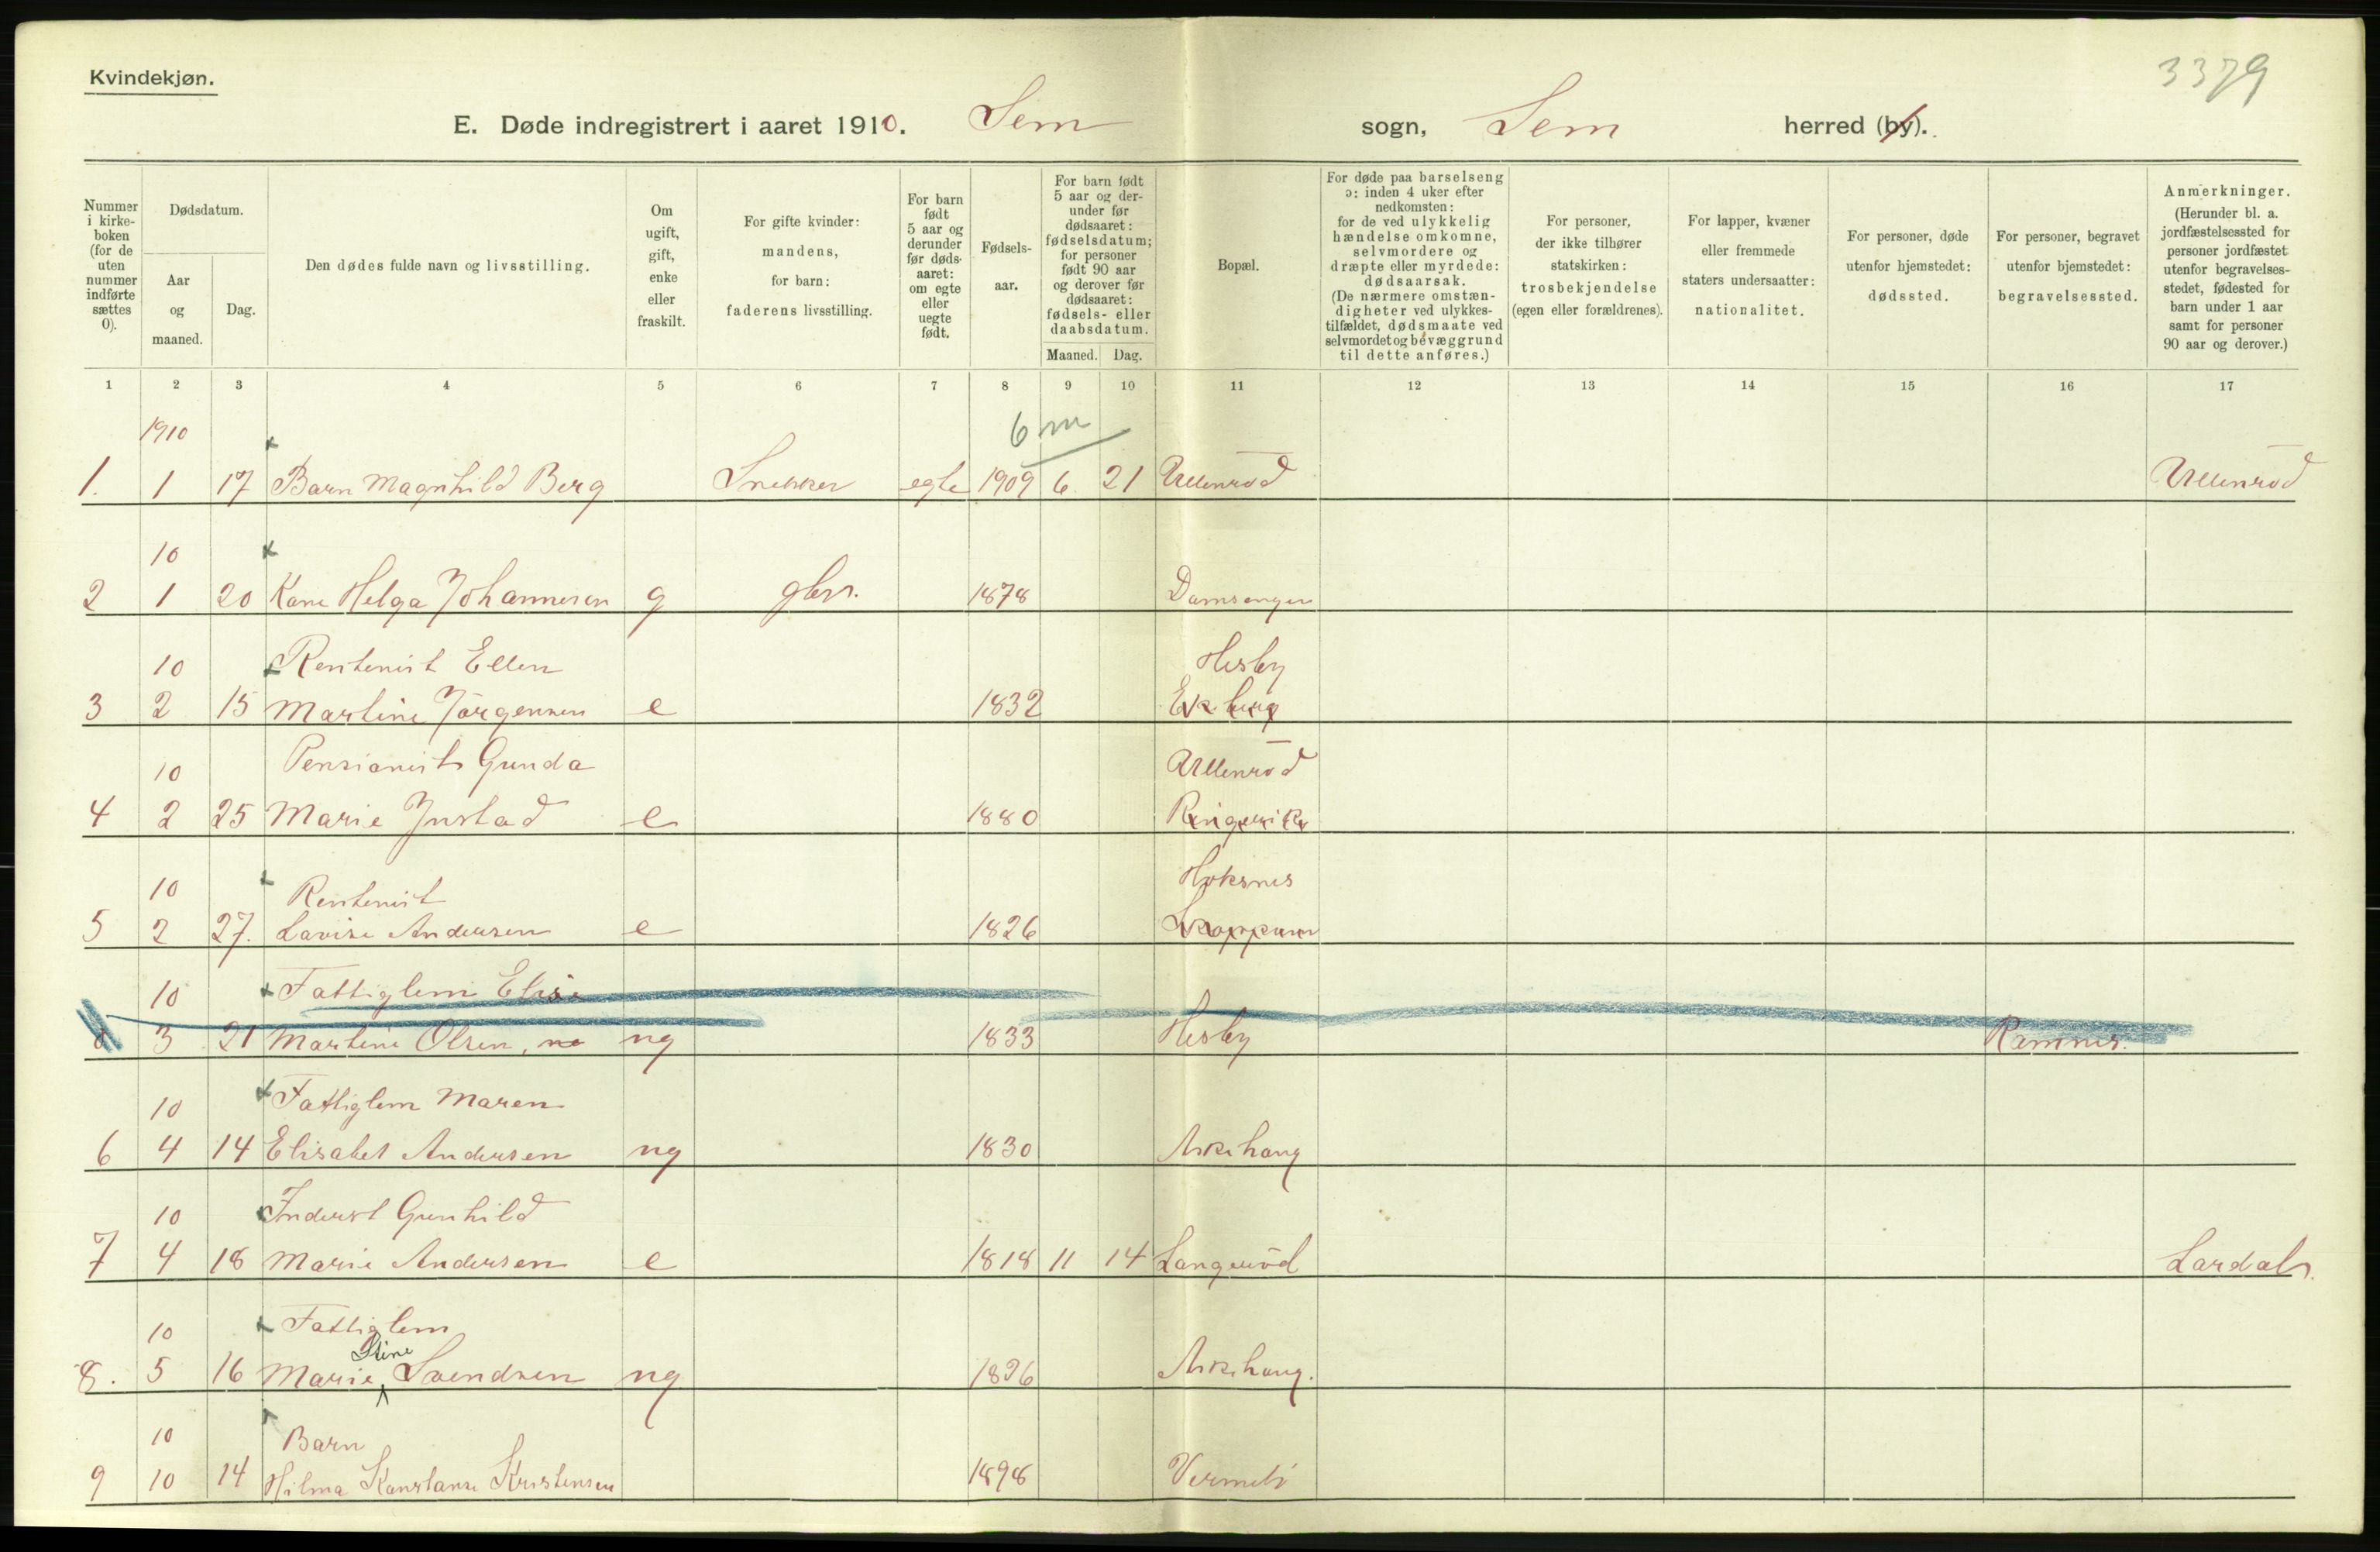 Kvindekjøn.
3379
E. Døde indregistrert i aaret 1910. Sem sogn, Sem herred (by).
Nummer i kirke-boken (for de uten nummer indførte sættes 0).
Dødsdatum.
Aar og maaned.
Dag.
Den dødes fulde navn og livsstilling.
Om ugift, gift, enke eller fraskilt.
For gifte kvinder: mandens, for barn: faderens livsstilling.
For barn født 5 aar og derunder før døds-aaret: om egte eller uegte født.
Fødsels-aar.
For barn født 5 aar og der-under før dødsaaret: fødselsdatum; for personer født 90 aar og derover før dødsaaret: fødsels- eller daabsdatum.
Maaned. Dag.
Bopæl.
For døde paa barselseng ɔ: inden 4 uker efter nedkomsten: for de ved ulykkelig hændelse omkomne, selvmordere og dræpte eller myrdede: dødsaarsak. (De nærmere omstæn-digheter ved ulykkes-tilfældet, dødsmaate ved selvmordet og bevæggrund til dette anføres.)
For personer, der ikke tilhører statskirken: trosbekjendelse (egen eller forældrenes).
For lapper, kvæner eller fremmede staters undersaatter: nationalitet.
For personer, døde utenfor hjemstedet: dødssted.
For personer, begravet utenfor bjemstedet: begravelsessted.
Anmerkninger. (Herunder bl. a. jordfæstelsessted for personer jordfæstet utenfor begravelses-stedet, fødested for barn under 1 aar samt for personer 90 aar og derover.)
1 2 3 4 5 6 7 8 9 10 11 12 13 14 15 16 17
1910 6 m
1. 1 17 Barn Magnhild Berg Snekker egte 1909 6 21 Ullenrød Ullenrød
10
2 1 20 Kone Helga Johannesen g gbr. 1878 Damsengen
10 Rentenist Ellen Hesby
3 2 15 Martine Jörgensen e 1832 Ekberg
10 Pensionist Gunda Ullenrød
4 2 25 Marie Justad e 1880 Ringerike
10 Rentenist Hoksnes
5 2 27. Lovise Andersen e 1826
10 Fattiglem Elise
3 21 Martine Olsen, ng 1833 Hesby Ramnes.
10 Fattiglem Maren
6 4 14 Elisabet Andersen ng 1830 Askehaug
10 Inderst Gunhild
7 4 18 Marie Andersen e 1818 11 14 Langerød Lardal
10 Fattiglem
Stine
8. 5 16 Marie Svendsen ng 1826 Askehaug.
10 Barn
9 10 14 Hilma Konstanse Kristensen 1898